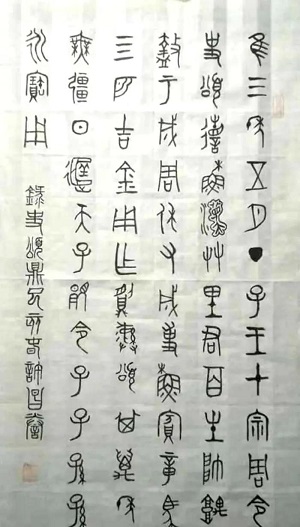 隹三年五月丁子王才宗周令
史頌省穌友里君百生帥堣
盩于成周休又成事穌賓章馬
四匹吉金用乍䵼彝頌其萬年
無疆日遟天子顯令子子孫孫
永寶用
錄史頌鼎